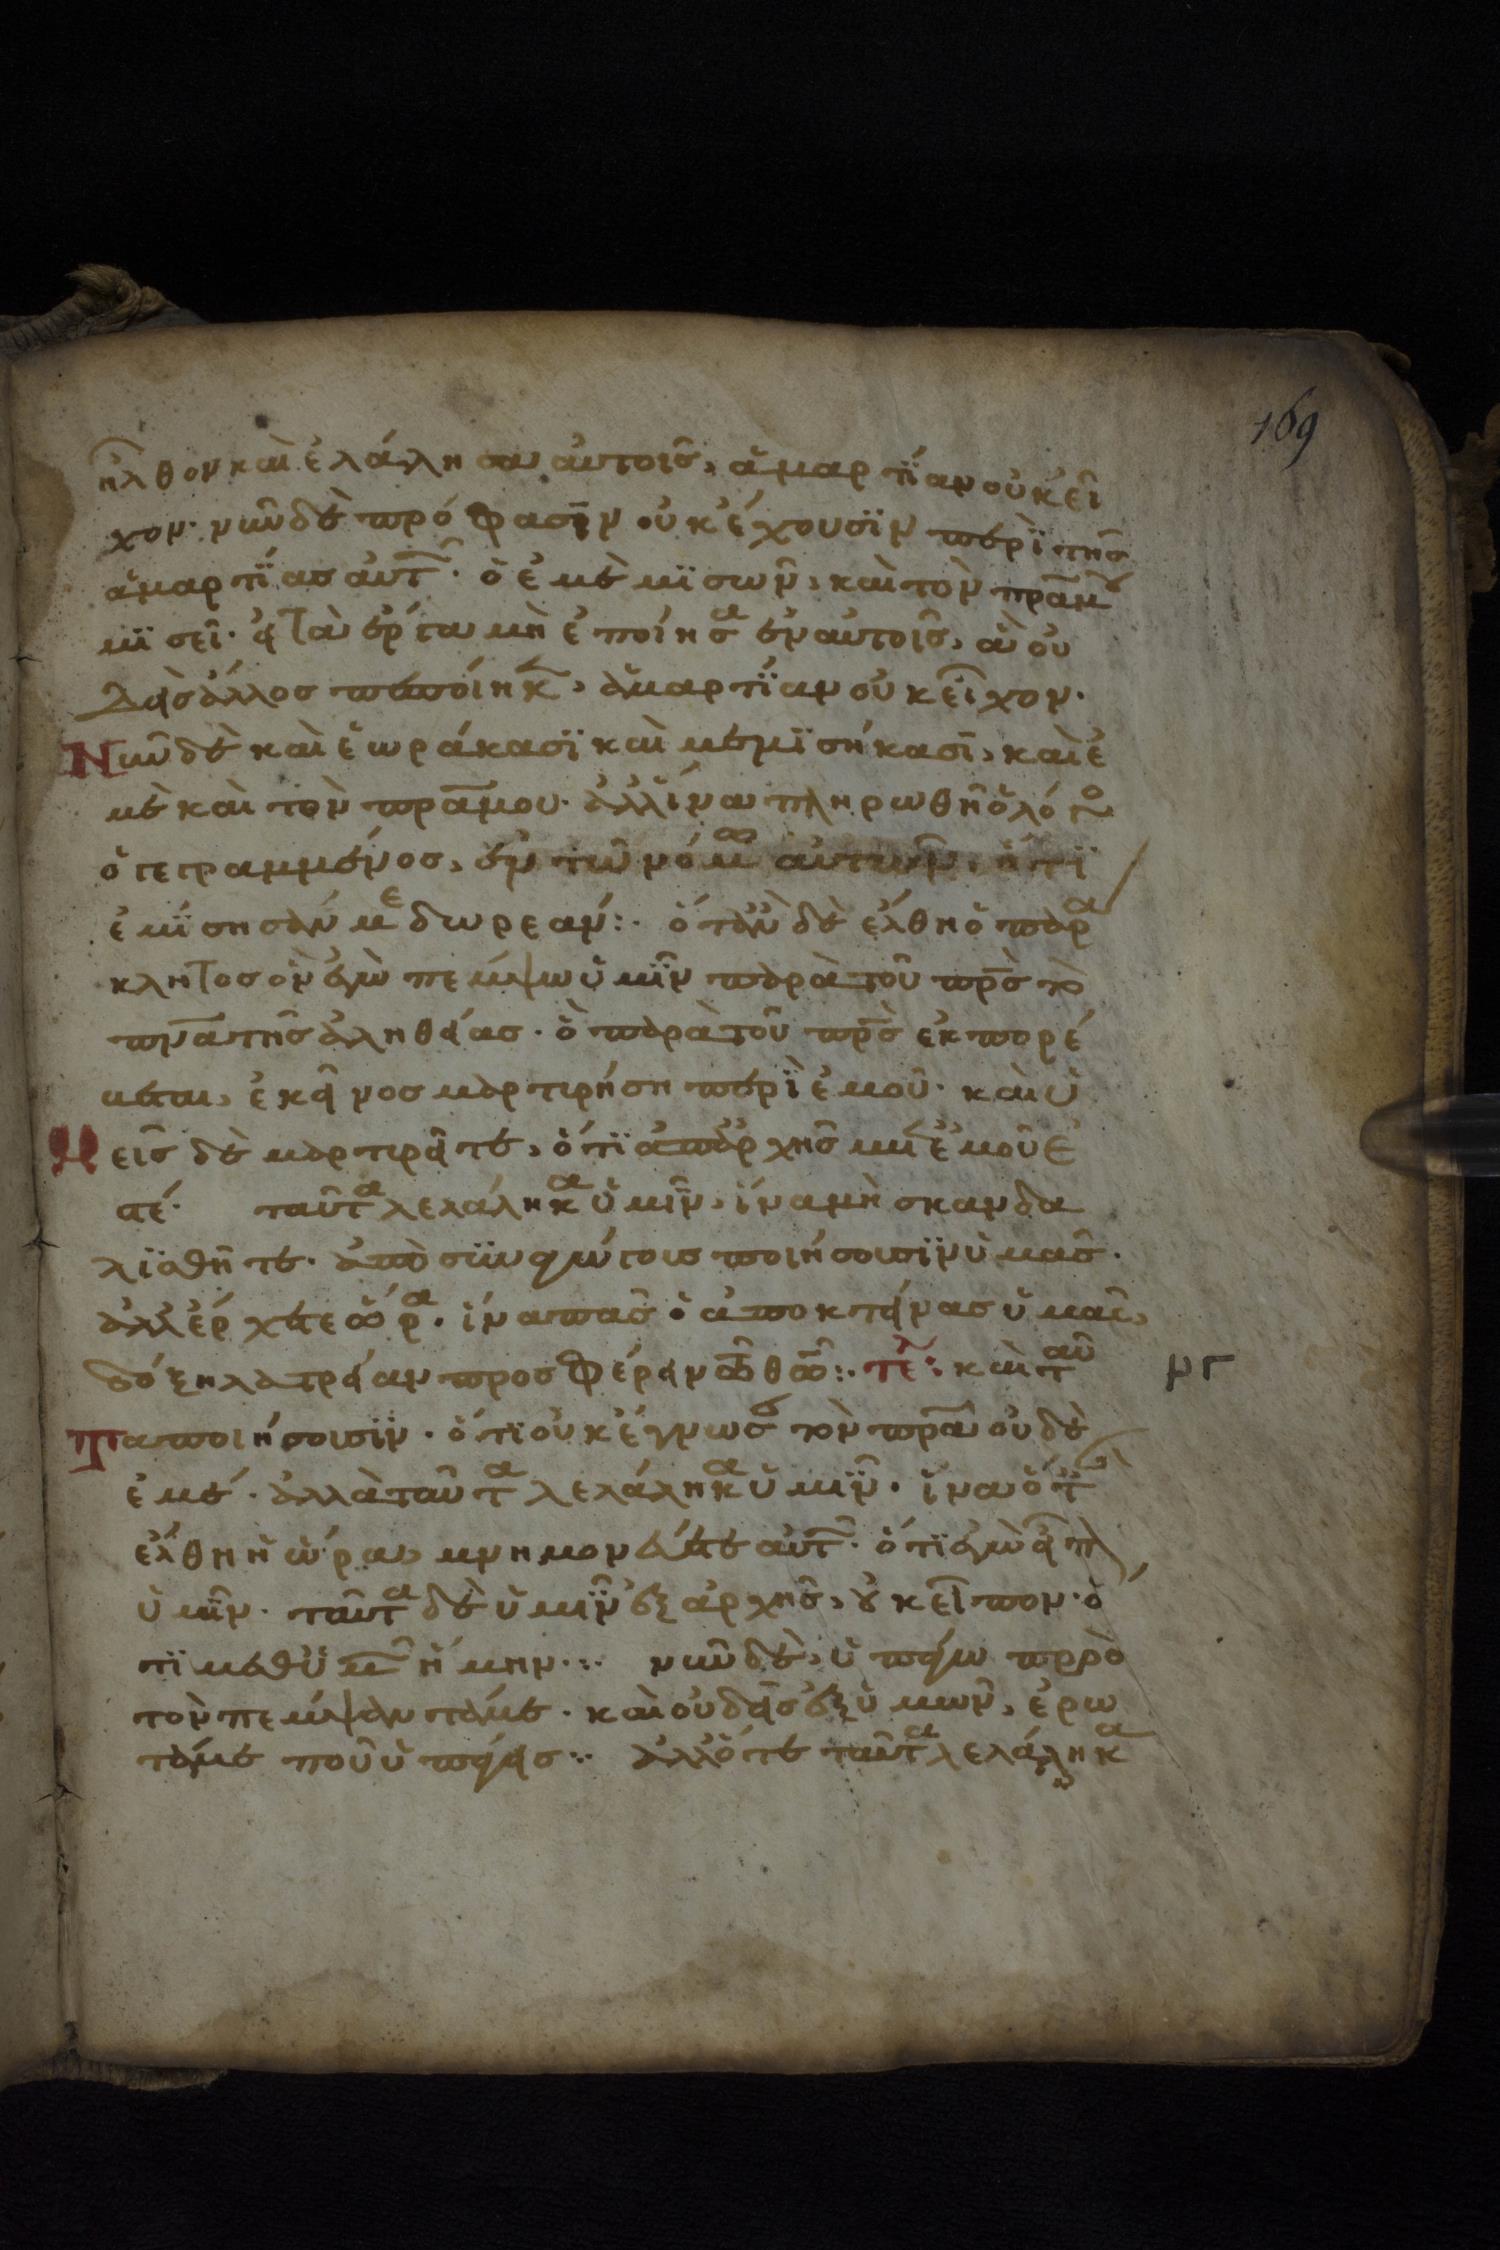 169
ἦλθον καὶ ἐλάλησα αὐτοῖς, ἁμαρτΐαν οὐκ εἶ
χον· νῦν δὲ πρόφασϊν οὐκ ἔχουσϊν περὶ τῆς
ἁμαρτΐας αὐτ̑· ὁ ἐμὲ μϊσῶν, καὶ τὸν πρ̅α μ
μϊσεῖ· εἰ τὰ ἔργα μὴ ἐποίησα ἐν αὐτοῖς, ἃ οὐ
δεὶς ἄλλος πεποίηκ, ἁμαρτΐαν οὐκ εἶχον·
Νῦν δὲ καὶ ἑωράκασϊ καὶ μεμϊσήκασϊ, καὶ ἐ
μὲ καὶ τὸν πρ̅α μου· ἀλλ' ἵνα πληρωθῆ ὁ λόγο
ὁ γεγραμμένος, ἐν τῶ νόμω αὐτῶν, ὅτϊ
ἐμΐσησάν με δωρεάν:· ὅταν δὲ ἔλθη ὁ παρα
κλητος ὃν ἐγὼ πέμψω ὑμῖν παρὰ τοῦ πρ̅ς τὸ
πν̅α τῆς ἀληθείας· ὃ παρὰ τοῦ πρ̅ς ἐκπορέ
υεται, ἐκεῖνος μαρτυρήση περὶ ἐμοῦ· καὶ ὑ
Μεῖς δὲ μαρτυρεῖτε, ὅτϊ ἀπ' ἀρχῆς μετ' ἐμοῦ ἐ
στέ· ταῦτα λελάληκα ὑμῖν, ἵνα μὴ σκανδα
λϊσθῆτε· ἀποσϋναγώγους ποιήσουσϊν ὑμᾶς·
ἀλλ' ἔρχεται ὥρα· ἵνα πᾶς ὁ ἀποκτείνας ὑμᾶς,
δόξη λατρείαν προσφέρειν τῶ θω:· τε: καὶ ταῦ
Ταποιήσουσϊν· ὅτϊ οὐκ ἔγνωσ τὸν πρ̅α οὐδὲ
ἐμέ· ἀλλὰ ταῦτα λελάληκα ὑμῖν· ἵνα ὅτ
ἔλθη ἡ ὥρα, μνημονεύετε αὐτ̑· ὅτϊ ἐγὼ εἶπ
ὑμῖν· ταῦτα δὲ ὑμῖν ἐξ ἀρχῆς, οὐκ εἶπον· ὅ
τϊ μεθ' ὑμ̑ ἤμην:· νῦν δὲ, ὑπάγω πρὸ
τὸν πέμψαντά με· καὶ οὐδεὶς ἐξ ὑμῶν, ἐρω
τᾶ με ποῦ ὑπάγεις:· ἀλλ' ὅτε ταῦτα λελάληκα
μγ